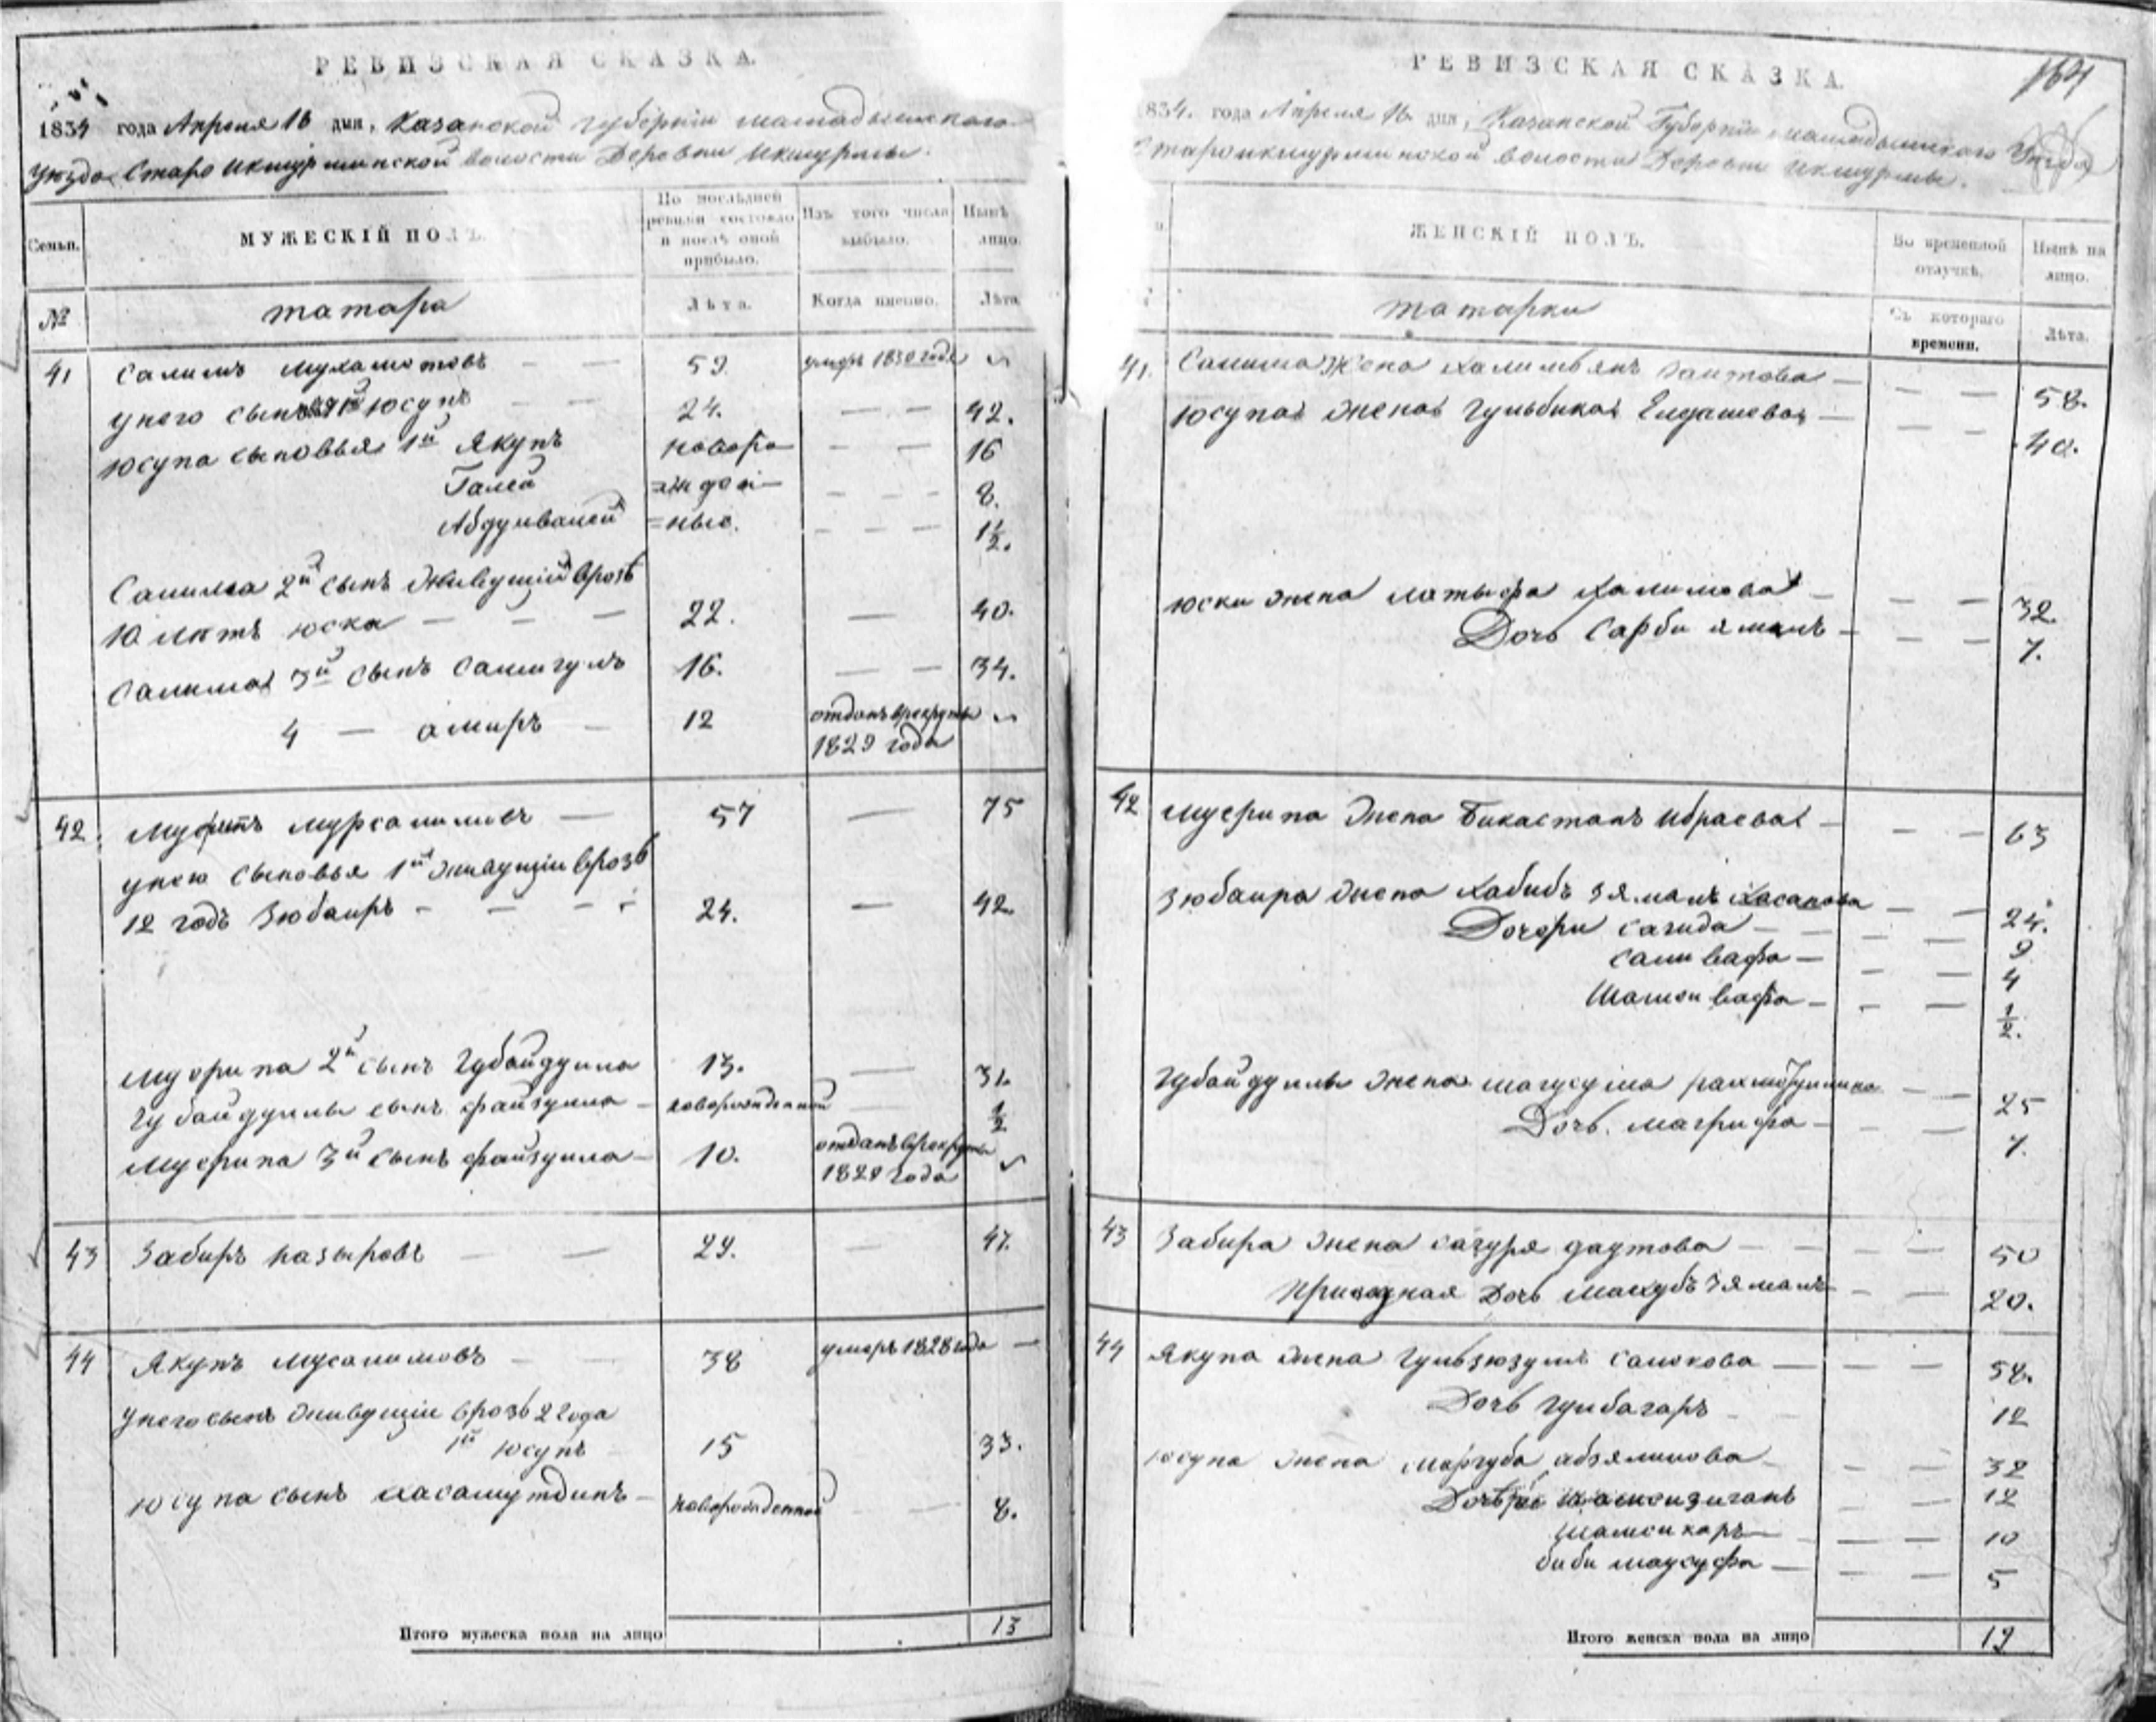 РЕВИЗСКАЯ СКАЗКА.
1834 года Апреля 16 дня, Казанской губернiи мамадышскаго
уѣзда Старо Икшурминской волости Деревни Икшурмы.
Семьи.
МУЖЕСКIЙ ПОЛЪ.
По послѣдней ревизiи состояло и послѣ оной прибыло.
Изъ того числа выбыло.
Нынѣ лицо.
№
татара
Лѣта.
Когда именно.
Лѣта
41 Салимъ Мухаметовъ — — 59. умеръ 1830 года
у него сынъ 1й Юсупъ — — 24. — — 42.
Юсупа сыновья 1й Якупъ новоро — — 16
Галей =жден — — — 8.
Абдулвалей =ные. — — — 1 1/2.
Салима 2й сынъ живущiй врозь
10 лѣтъ юска — — — 22. — 40.
Салима 3й сынъ Салигулъ 16. — — 34.
4 — амиръ — 12 отданъ врекруты
1829 года
42. Муфипъ мурсалимовъ — 57 — 75
у него сыновья 1й живущiй врозь
12 годъ Зюбаиръ — — — 24. — 42.
2й сынъ Губайдулла 13. — 31.
Губайдуллы сынъ файзулла — новорожденной — 1/2
3й сынъ файзулла — 10. отданъ врекруты
1828 года
43 Забиръ назыровъ — — 29. — 47.
44 Якупъ мусалимовъ — — 38 умеръ 1828 года —
у него сынъ живущiй врозь 2 года
1й юсупъ 15 33.
юсупа сынъ хасамутдинъ — новорожденной — — 8.
Итого мужеска пола на лицо 13
164
РЕВИЗСКАЯ СКАЗКА.
834. года Апреля 16 дня, Казанской Губернiи мамадышскаго Уезда
Староикшурминской волости Деревни Икшурмы.
ЖЕНСКIЙ ПОЛЪ.
Во временной отлучкѣ.
Нынѣ на лицо.
татарки
Съ котораго времени.
Лѣта.
41. Салима Жена Халимъянъ Саитова — — — 58.
Юсупа жена Гульбика Елдашева — — — 40.
юски жена латыфа Халилова — — — 32.
Дочь Сарби ямалъ — — — 7.
42 жена Бикастанъ Ибраева — — — 63
Зюбаира жена Хабибъ зямалъ Хасанова — — 24.
Дочери сагида — — — 9
Сали вафа — — — 4
Шамси вафа — — — 1/2.
Губайдуллы жена магусума рахматуллина — — 25
Дочь. магрифа — — — 7.
43 Забира жена сагуря даутова — — — 50
Приводная Дочь Махубъ зямалъ — — — 20.
44 Якупа жена Гульзюзумъ Салихова — — — 58.
Дочь гулбагаръ — — 12
юсупа жена маргуба абзялилова — — — 32
Дочери 12
Шамси каръ — — — 10
биби маусуфа — — — 5
Итого женска пола на лицо 19